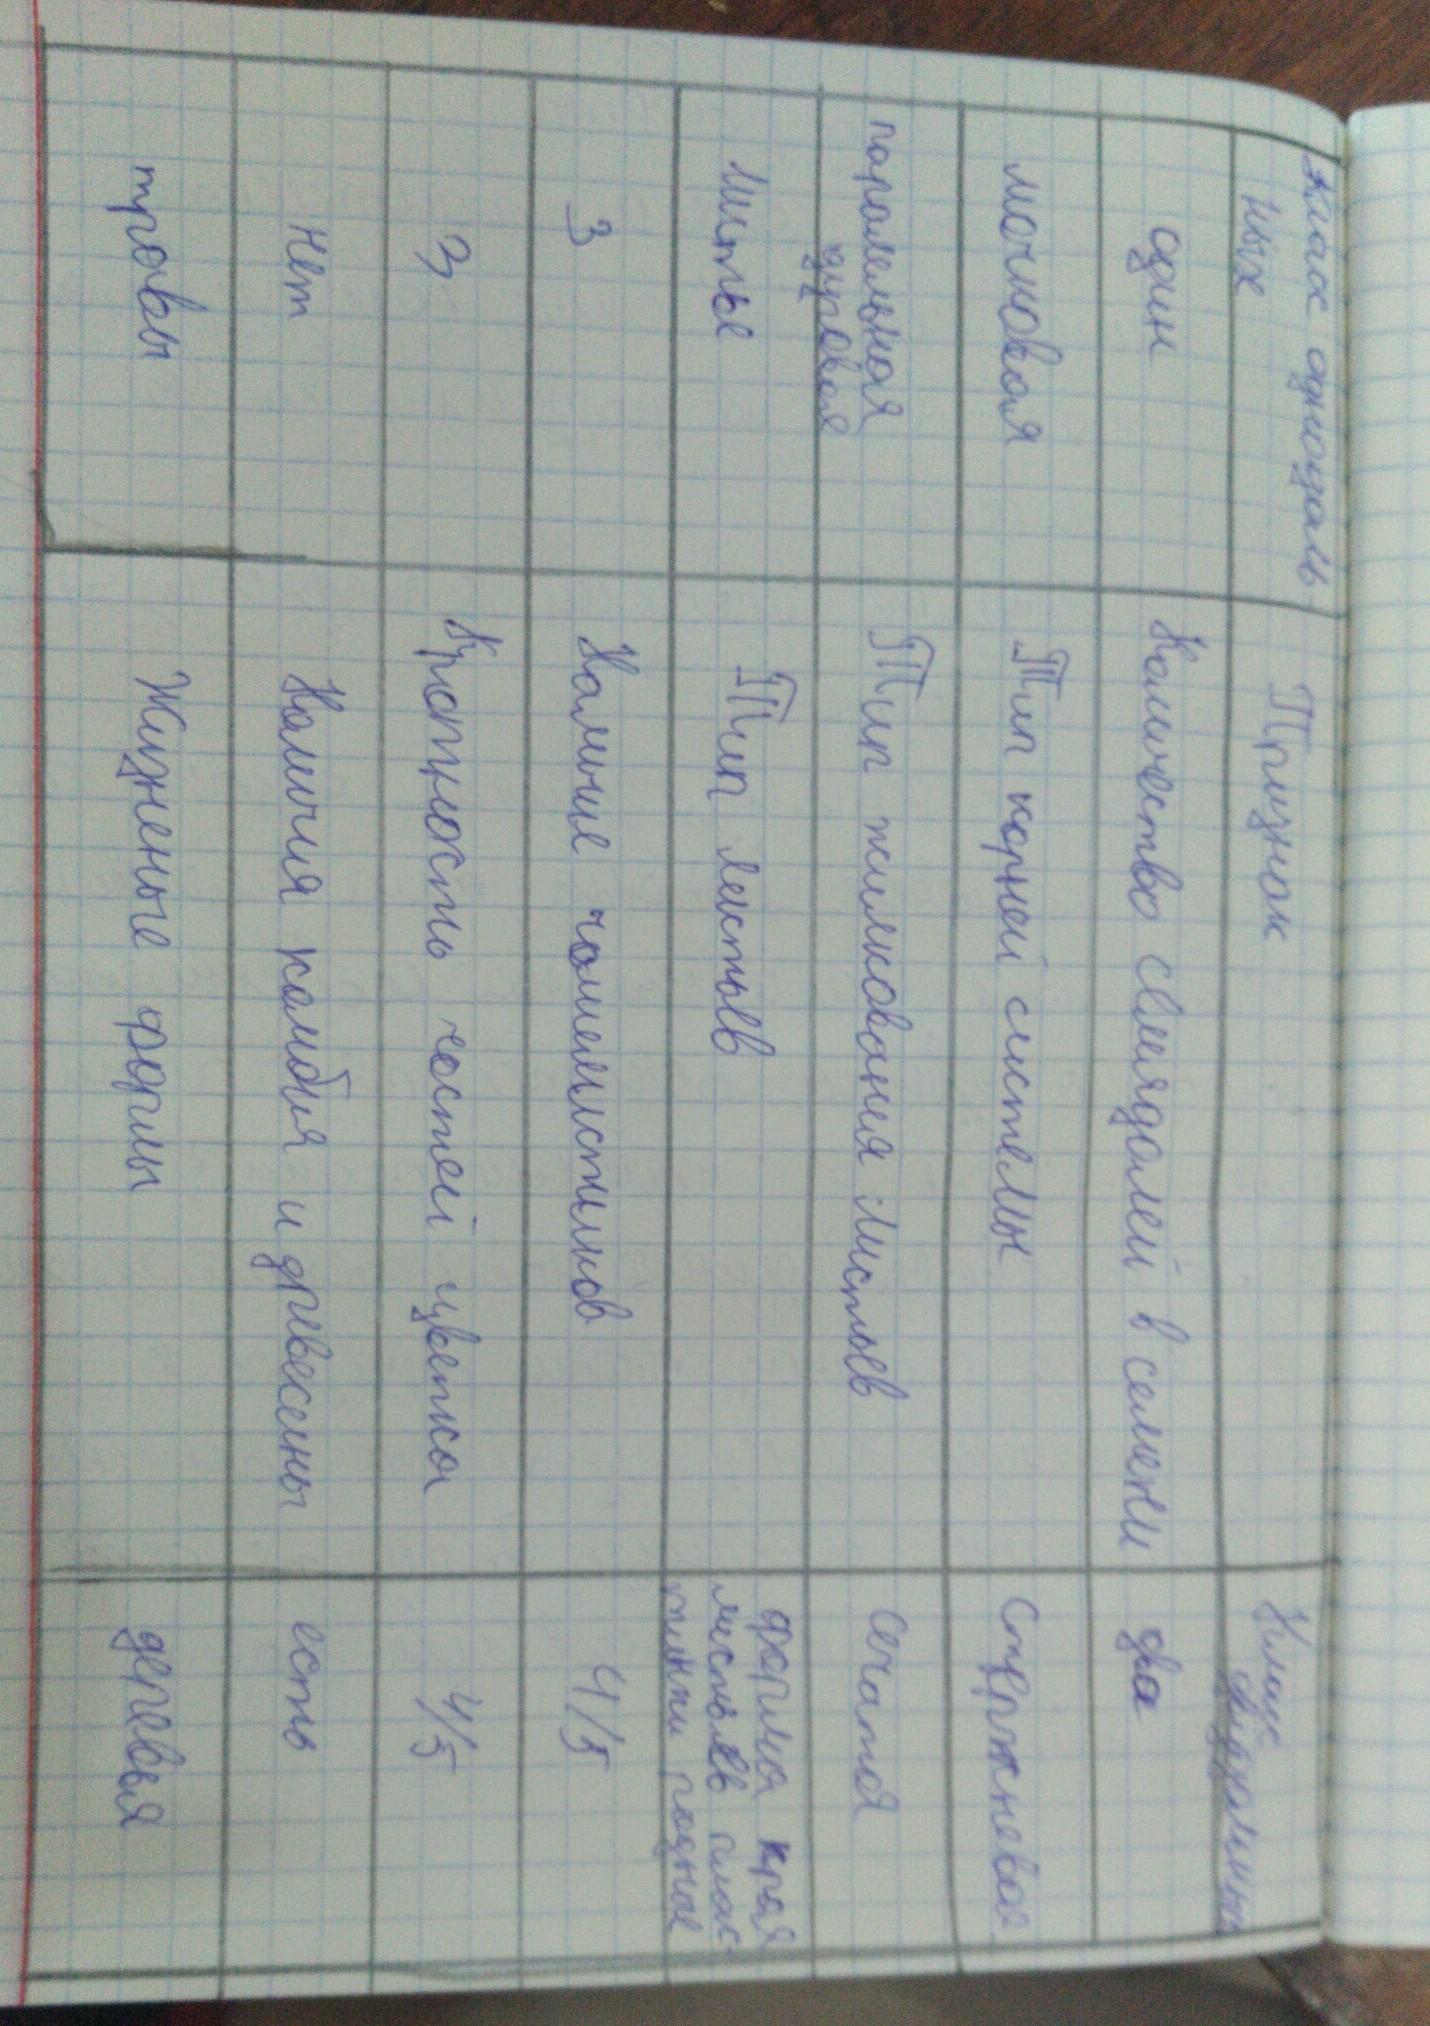 Класс однодоль-
ных
Признак
Класс
двудольных
один
Количество семядолей в семени
два
мочковая
Тип корней системы
Стержневая
паралельная
дуговая
Тип жилкования листьев
сечатая
Литье
Тип листьев
форма края
листьев плас-
тинки родные
3
Наличие чашелистиков
4/5
3
Кратность частей цветка
4/5
нет
Наличия камбия и древесины
есть
травы
Жизненые формы
деревья